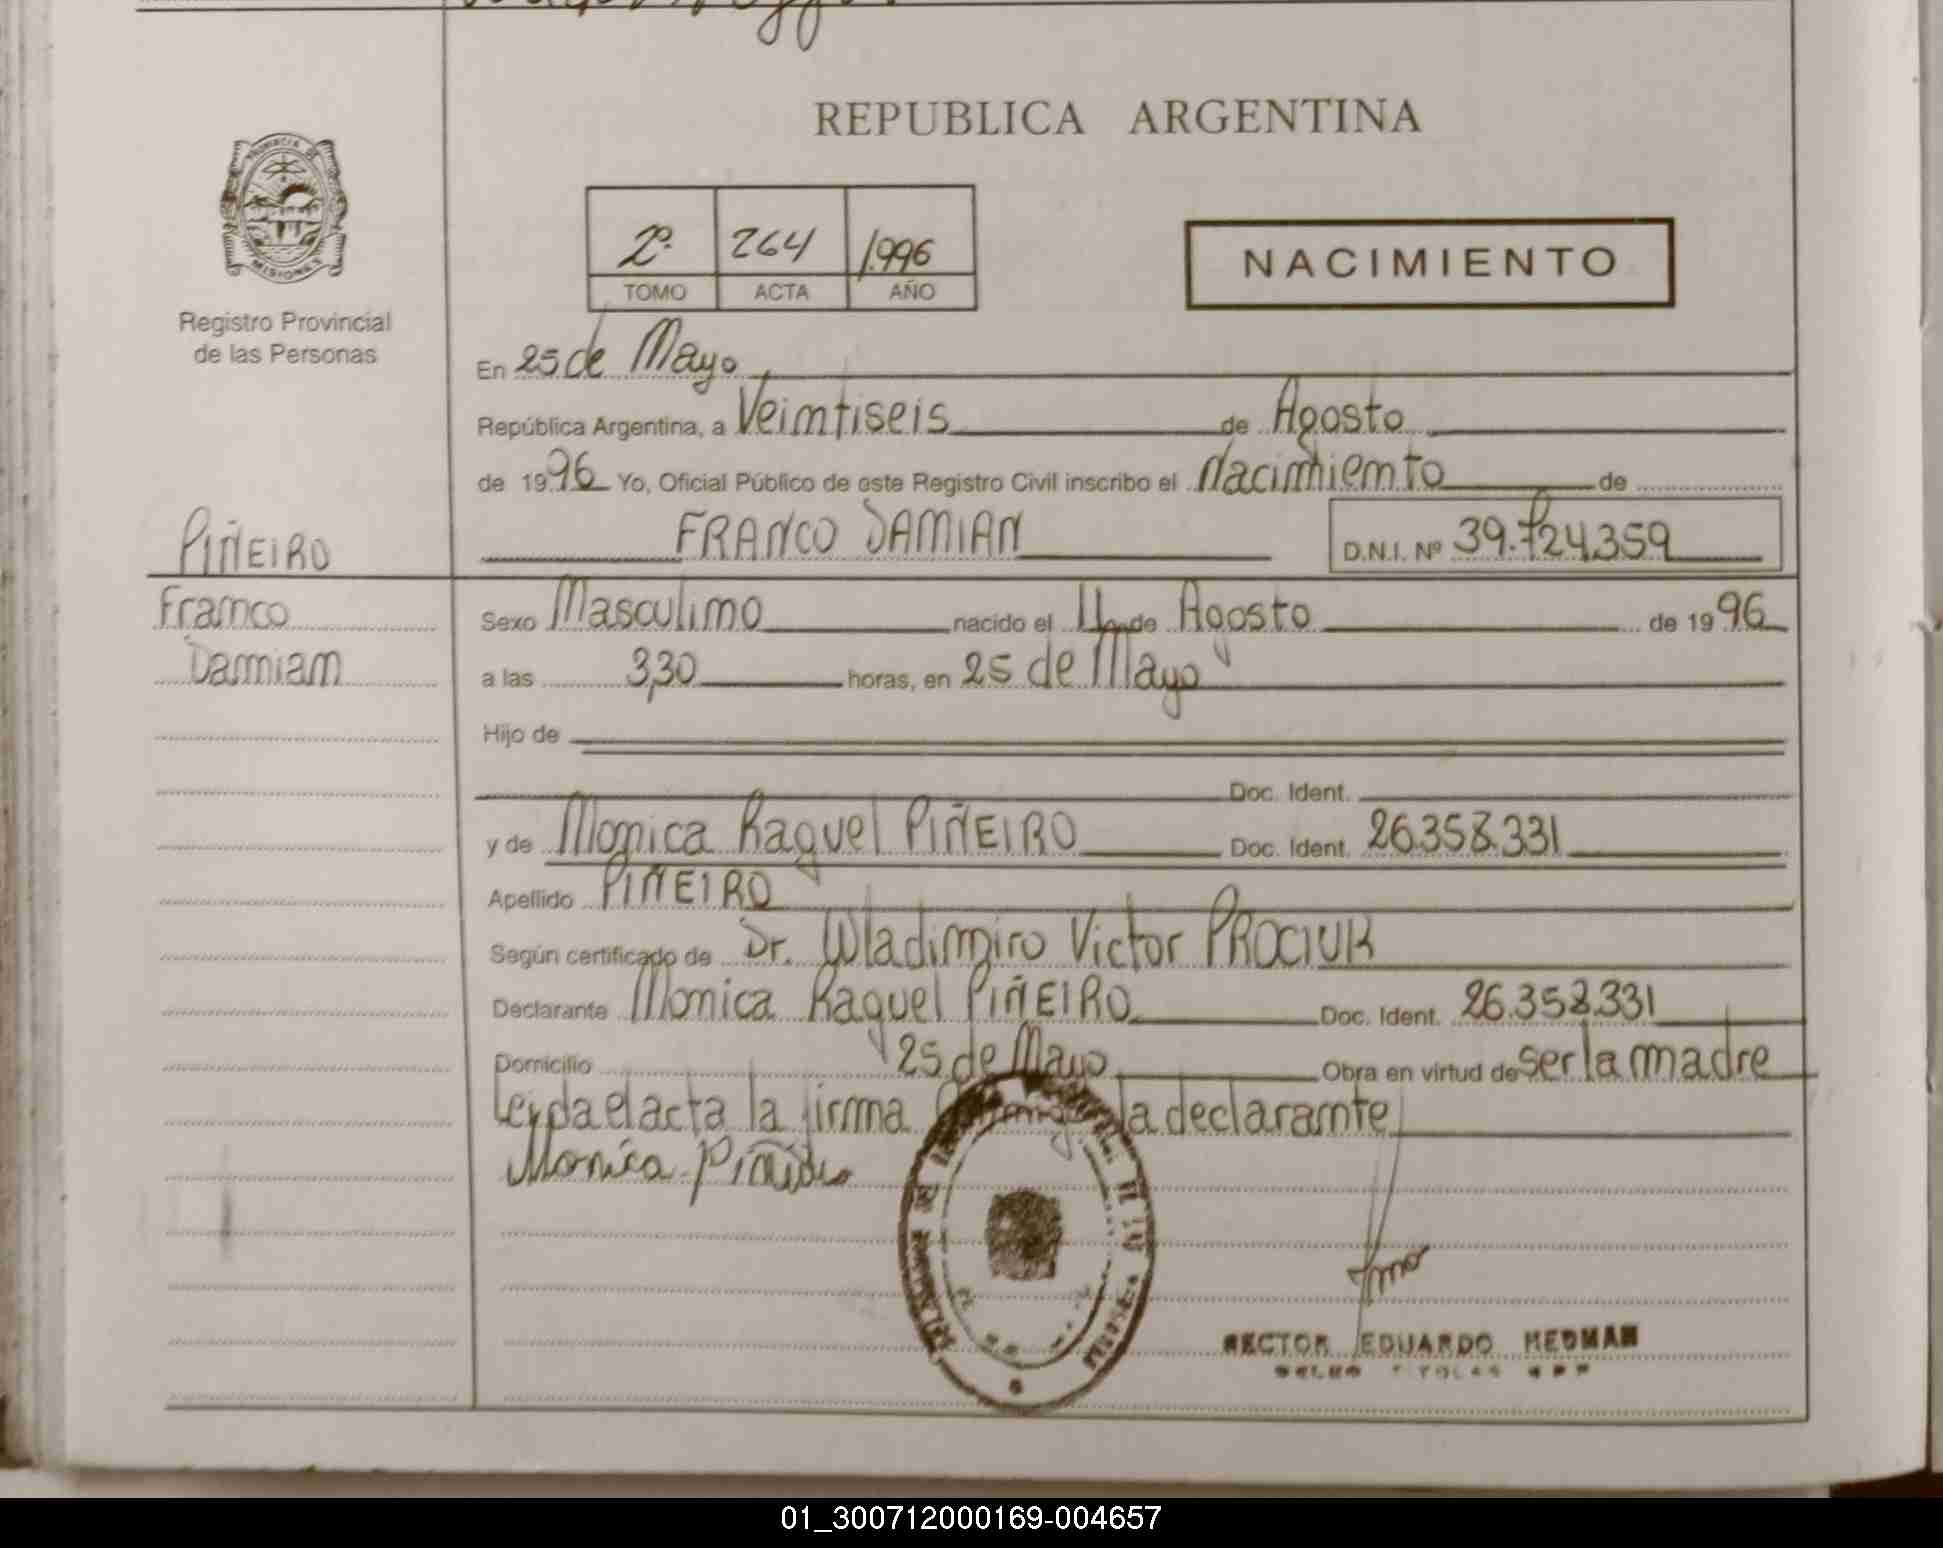 REPUBLICA ARGENTINA
PROVINCIA DE
MISIONES
Registro Provincial
de las Personas
2º 264 1.996
TOMO ACTA AÑO
NACIMIENTO
En 25 de Mayo
República Argentina, a Veintiseis de Agosto
de 1996 Yo, Oficial Público de este Registro Civil inscribo el Nacimiento de
FRANCO DAMIAN D.N.I. Nº 39.724.359
PIÑEIRO
Franco
Damian
Sexo Masculino nacido el 11 de Agosto de 1996
a las 3,30 horas, en 25 de Mayo
Hijo de
Doc. Ident.
y de Monica Raquel PIÑEIRO Doc. Ident. 26.358.331
Apellido PIÑEIRO
Según certificado de Dr. Wladimiro Victor PROCIUK
Declarante Monica Raquel PIÑEIRO Doc. Ident. 26.358.331
Domicilio 25 de Mayo Obra en virtud de ser la madre
Leida el acta la firma la declarante
Monica Piñeiro
HECTOR EDUARDO HEDMAN
01_300712000169-004657